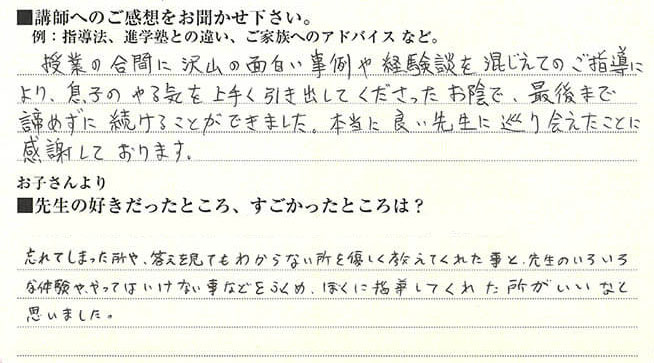 ■講師へのご感想をお聞かせ下さい。
例：指導法、進学塾との違い、ご家族へのアドバイス など。
授業の合間に沢山の面白い事例や経験談を混じえてのご指導に
より、息子のやる気を上手く引き出してくださったお陰で、最後まで
諦めずに続けることができました。本当に良い先生に巡り会えたことに
感謝しております。
お子さんより
■先生の好きだったところ、すごかったところは？
忘れてしまった所や、答えを見てもわからない所を優しく教えてくれた事と、先生のいろいろ
な体験や、やってはいけない事などをふくめ、ぼくに指導してくれた所がいいなと
思いました。